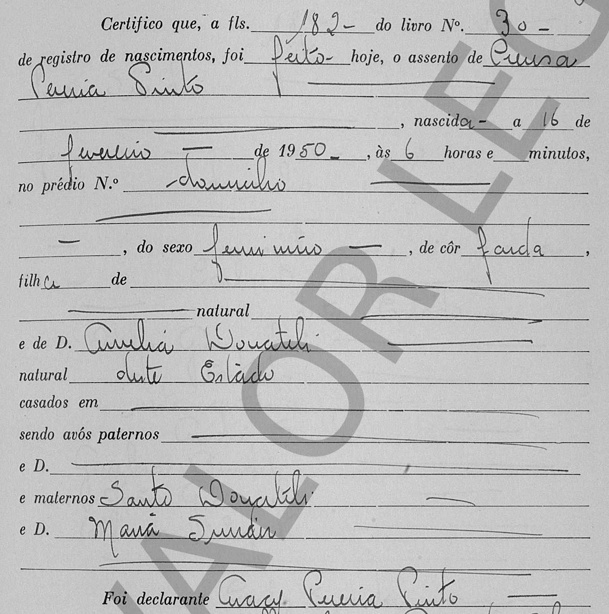 Certifico que, a fls. 182 - do livro Nº. 30 -
de registro de nascimentos, foi feito - hoje, o assento de Creusa
Pereira Pinto
, nascida - a 16 de
fevereiro - de 1950 - , às 6 horas e minutos,
no prédio N.º - domicilio
- , do sexo feminino - , de côr parda ,
filha de
natural
e de D. Amelia Donateli
natural deste Estado
casados em
sendo avós paternos
e D.
e maternos Santo Donateli
e D. Maria
Foi declarante Pereira Pinto
VALOR LEG